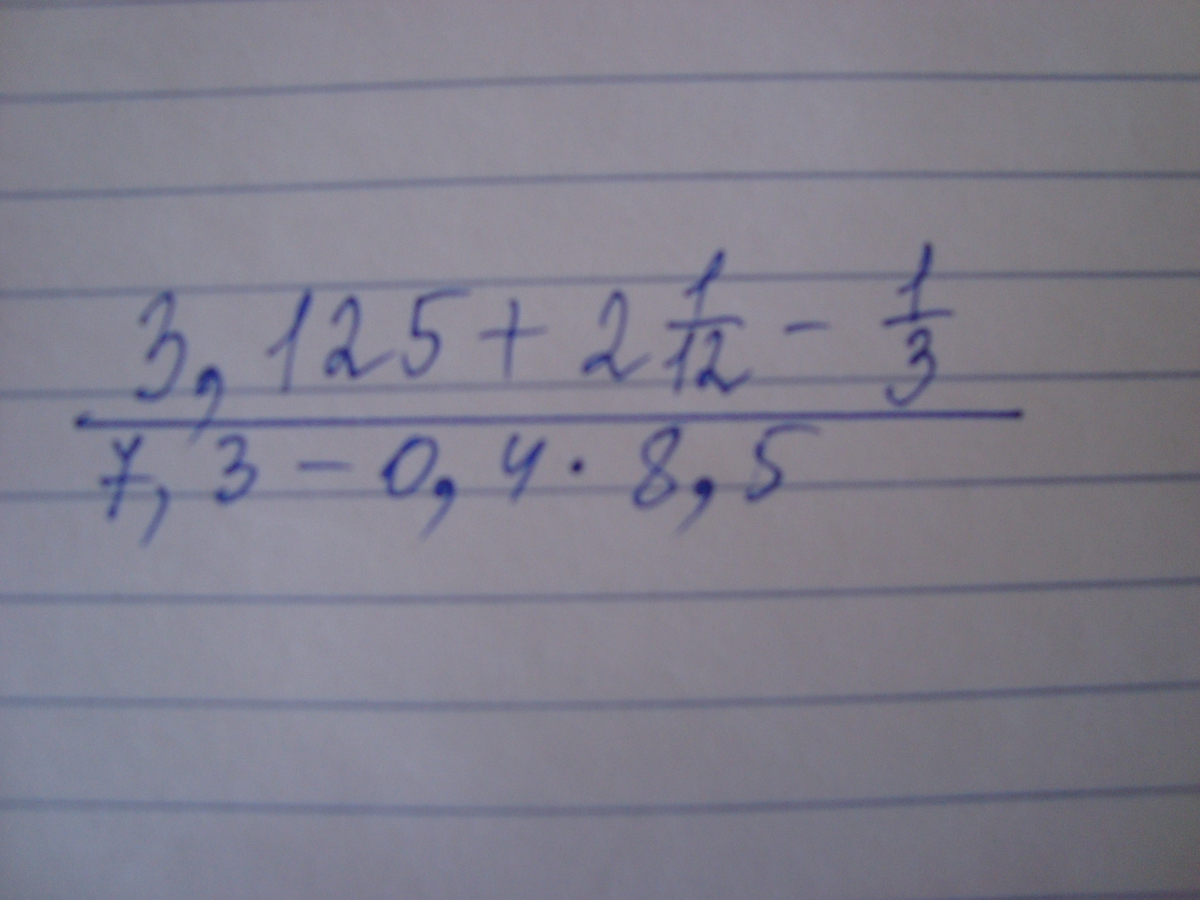 3,125 + 2 1/12 - 1/3
7,3 - 0,4 · 8,5